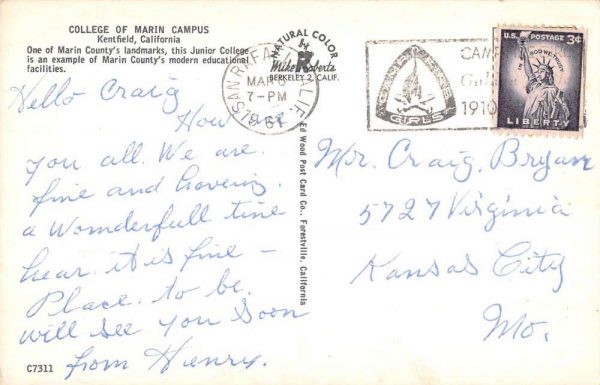 COLLEGE OF MARIN CAMPUS
Kentfield, California
One of Marin County's landmarks, this Junior College
is an example of Marin County's modern educational
facilities.
Hello Craig
How
you all. We are.
fine and havering.
a Womderfull tine
hear. it is fine –
Place. to be.
will see you soon
from Henry.
C7311
SAN RAFAEL CALIF.
MAR
7-PM
NATURAL COLOR
Mike Roberts
BERKELEY 2, CALIF.
Ed Wood Post Card Co., Forestville, California
CAMP
GIRLS
1910
U.S. POSTAGE 3¢
IN GOD WE TRUST
LIBERTY
Mr. Craig. Bryan
5727 Virginia
Kansas City
Mo.